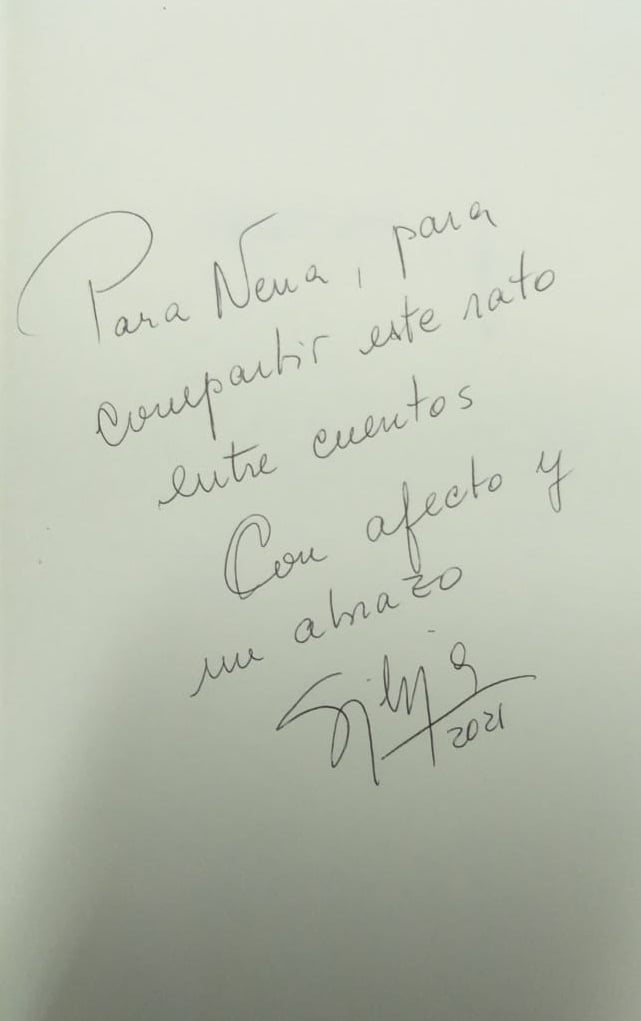 Para Nena, para
compartir este rato
entre cuentos
Con afecto y
un abrazo
Silvia
2021